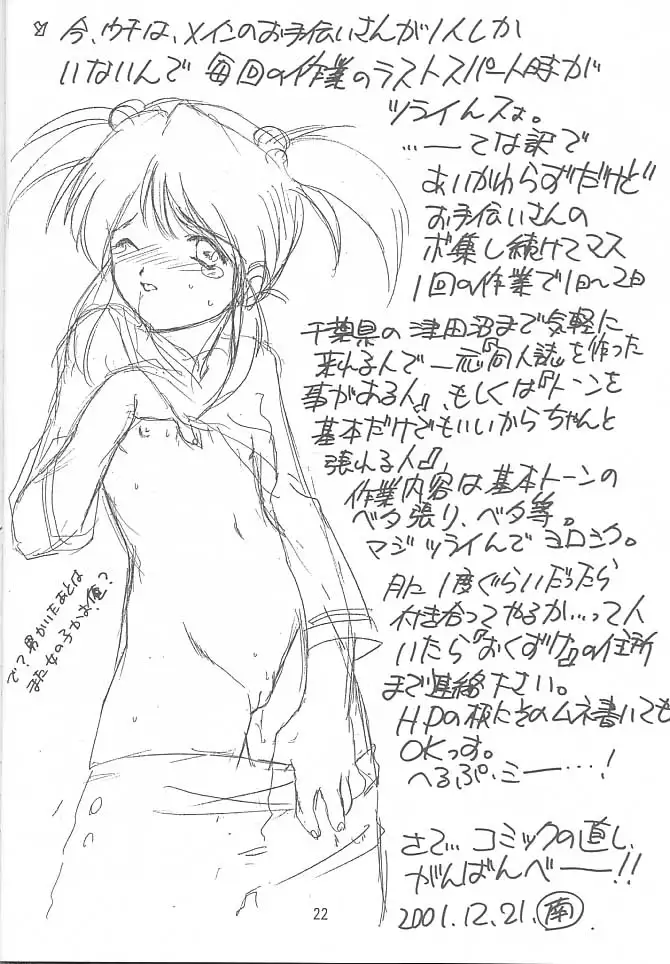 今、ウチは、メインのお手伝いさんが1人しか
いないんで毎回の作業のラストスパート時が
ツライんスよ。
…ーてな訳で
あいかわらずだけど
お手伝いさんの
ボ集し続けてマス
1回の作業で1日〜2日
千葉県の津田沼まで気軽に
来れる人で一応『同人誌を作った
事がある人』、もしくは『トーンを
基本だけでもいいからちゃんと
張れる人』、
作業内容は基本トーンの
ベタ張り、ベタ等。
マジツライんでヨロシク。
月に1度ぐらいだったら
付き合ってやるか…って人
いたら『おくずけ』の住所
まで連絡下さい。
H.Pの板にそのムネ書いても
OKっす。
へるぷ・ミー…!
で?男かいたあとは
また女の子かよ俺?
さて…コミックの直し、
がんばんべー!!
2001.12.21.南.
22